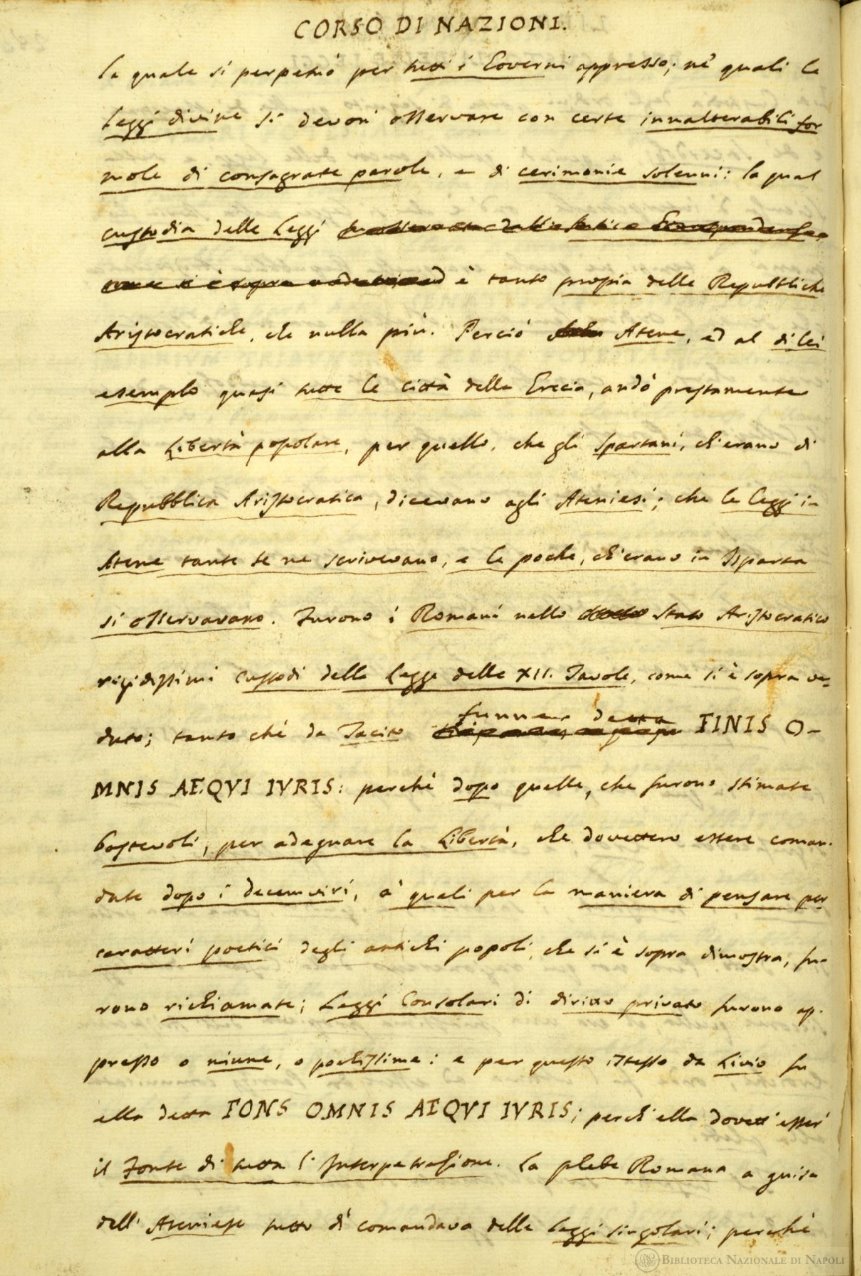 CORSO DI NAZIONI.
la quale si perpetuò per tutti i Governi appresso; ne' quali le
Leggi divine si devon' osservare con certe innalterabili for
mole di consagrate parole, e di cerimonie solenni: la qual
custodia delle Leggi
è tanto propia delle Repubbliche
Aristocratiche, che nulla più. Perciò Atene, ed al di lei
esemplo quasi tutte le città della Grecia, andò prestamente
alla Libertà popolare, per quello, che gli Spartani, ch'erano di
Repubblica Aristocratica, dicevano agli Ateniesi; che le Leggi in
Atene tante se ne scrivevano, e le poche, ch'erano in Isparta
si osservavano. Furono i Romani nello Stato Aristocratico
rigidissimi custodi della Legge delle XII. Tavole, come si è sopra ve-
duto; tanto che da Tacito funne detta FINIS O-
MNIS AEQVI IVRIS: perchè dopo quelle, che furono stimate
bastevoli, per adeguare la Libertà, che dovettero essere coman-
date dopo i decemviri, a' quali per la maniera di pensare per
caratteri poetici degli antichi popoli, che si è sopra dimostra, fu-
rono richiamate; Leggi Consolari di diritto privato furono ap-
presso o niune, o pochissime: e per questo istesso da Livio fu
ella detta FONS OMNIS AEQVI IVRIS; perch'ella dovett'esser'
il Fonte di tutta l'Interpetrazione. La plebe Romana a guisa
dell'Ateniese tutto dì comandava delle Leggi singolari; perchè
BIBLIOTECA NAZIONALE DI NAPOLI